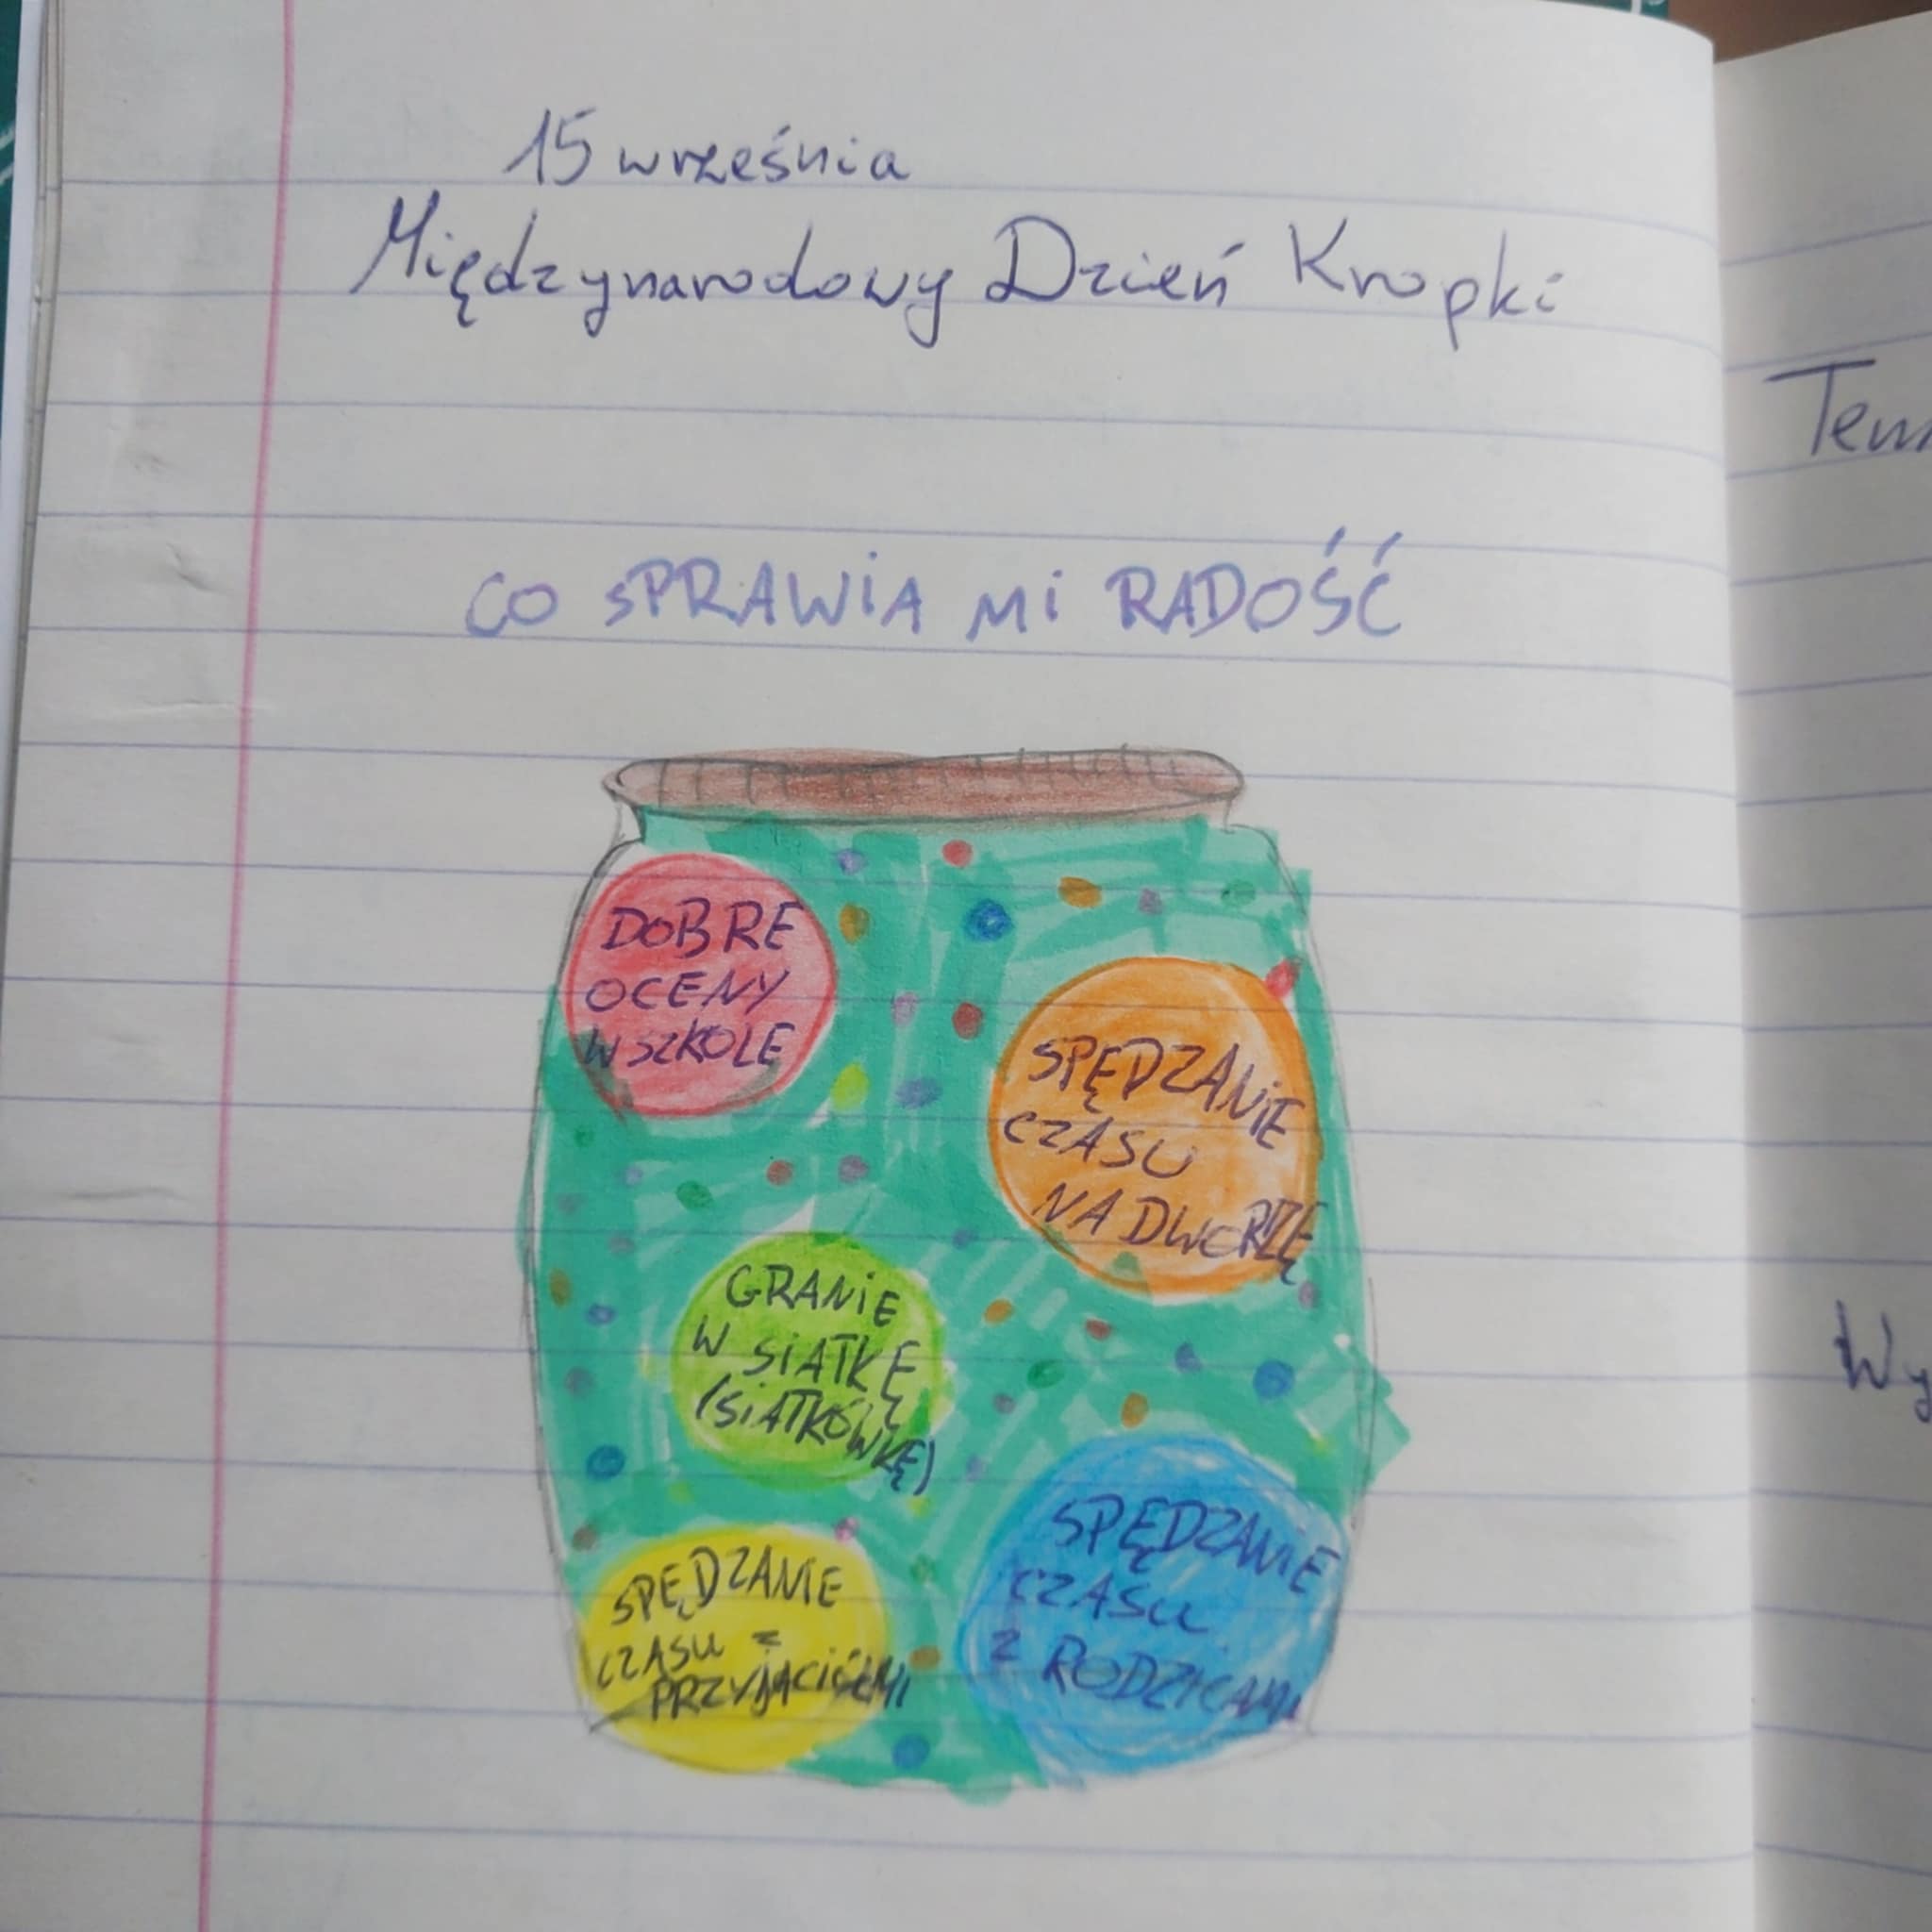 15 września
Międzynarodowy Dzień Kropki
Tem
CO SPRAWIA MI RADOŚĆ
DOBRE
OCENY
W SZKOLE
SPĘDZANIE
CZASU
NA DWORZĘ
GRANIE
W SIATKĘ
(SIATKÓWKĘ)
Wy
SPĘDZANIE
CZASU Z
PRZYJACIÓŁMI
SPĘDZANIE
CZASU
Z RODZICAMI